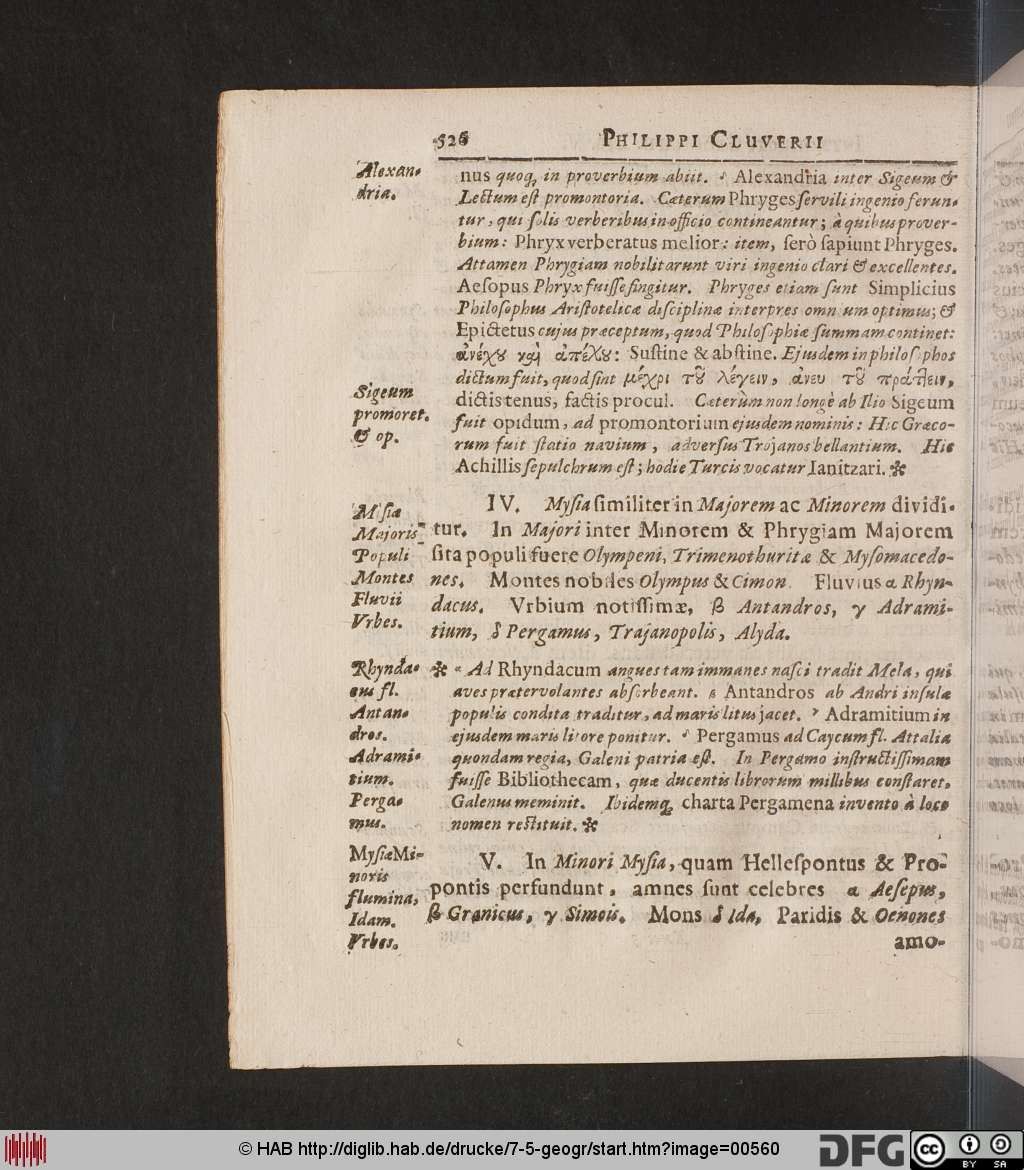 526 PHILIPPI CLUVERII
Alexan-
dria.
nus quoq; in proverbium abiit. δ Alexandria inter Sigeum &
Lectum est promontoria. Cæterum Phryges servili ingenio ferun-
tur, qui solis verberibus in officio contineantur; à quibus prover-
bium: Phryx verberatus melior: item, serò sapiunt Phryges.
Attamen Phrygiam nobilitarunt viri ingenio clari & excellentes.
Aesopus Phryx fuisse fingitur. Phryges etiam sunt Simplicius
Philosophus Aristotelicæ disciplinæ interpres omnium optimus; &
Epictetus cujus præceptum, quod Philosophiæ summam continet:
ἀνέχου καὶ ἀπέχου: Sustine & abstine. Ejusdem in philosophos
dictum fuit, quod sint μέχρι τοῦ λέγειν, ἄνευ τοῦ πράττειν,
Sigeum
promoret.
& op.
dictis tenus, factis procul. Cæterùm non longè ab Ilio Sigeum
fuit opidum, ad promontorium ejusdem nominis: Hic Græco-
rum fuit statio navium, adversus Trojanos bellantium. Hic
Achillis sepulchrum est; hodie Turcis vocatur Ianitzari. ✼
Mysiæ
Majoris
Populi
Montes
Fluvii
Vrbes.
IV. Mysia similiter in Majorem ac Minorem dividi-
tur. In Majori inter Minorem & Phrygiam Majorem
sita populi fuere Olympeni, Trimenothuritæ & Mysomacedo-
nes. Montes nobiles Olympus & Cimon. Fluvius α Rhyn-
dacus. Vrbium notissimæ, β Antandros, γ Adrami-
tium, δ Pergamus, Trajanopolis, Alyda.
Rhynda-
cus fl.
Antan-
dros.
Adrami-
tium.
Perga-
mus.
✼ α Ad Rhyndacum angues tam immanes nasci tradit Mela, qui
aves prætervolantes absorbeant. β Antandros ab Andri insulæ
populis condita traditur, ad maris litus jacet. γ Adramitium in
ejusdem maris litore ponitur. δ Pergamus ad Caycum fl. Attalia
quondam regia, Galeni patria est. In Pergamo instructissimam
fuisse Bibliothecam, quæ ducentis librorum millibus constaret,
Galenus meminit. Ibidemq; charta Pergamena invento à loco
nomen restituit. ✼
Mysiæ Mi-
noris
flumina,
Idam.
Vrbes.
V. In Minori Mysia, quam Hellespontus & Pro-
pontis perfundunt, amnes sunt celebres α Aesepus,
β Granicus, γ Simois. Mons δ Ida, Paridis & Oenones
amo-
© HAB http://diglib.hab.de/drucke/7-5-geogr/start.htm?image=00560
DFG
cc
BY SA